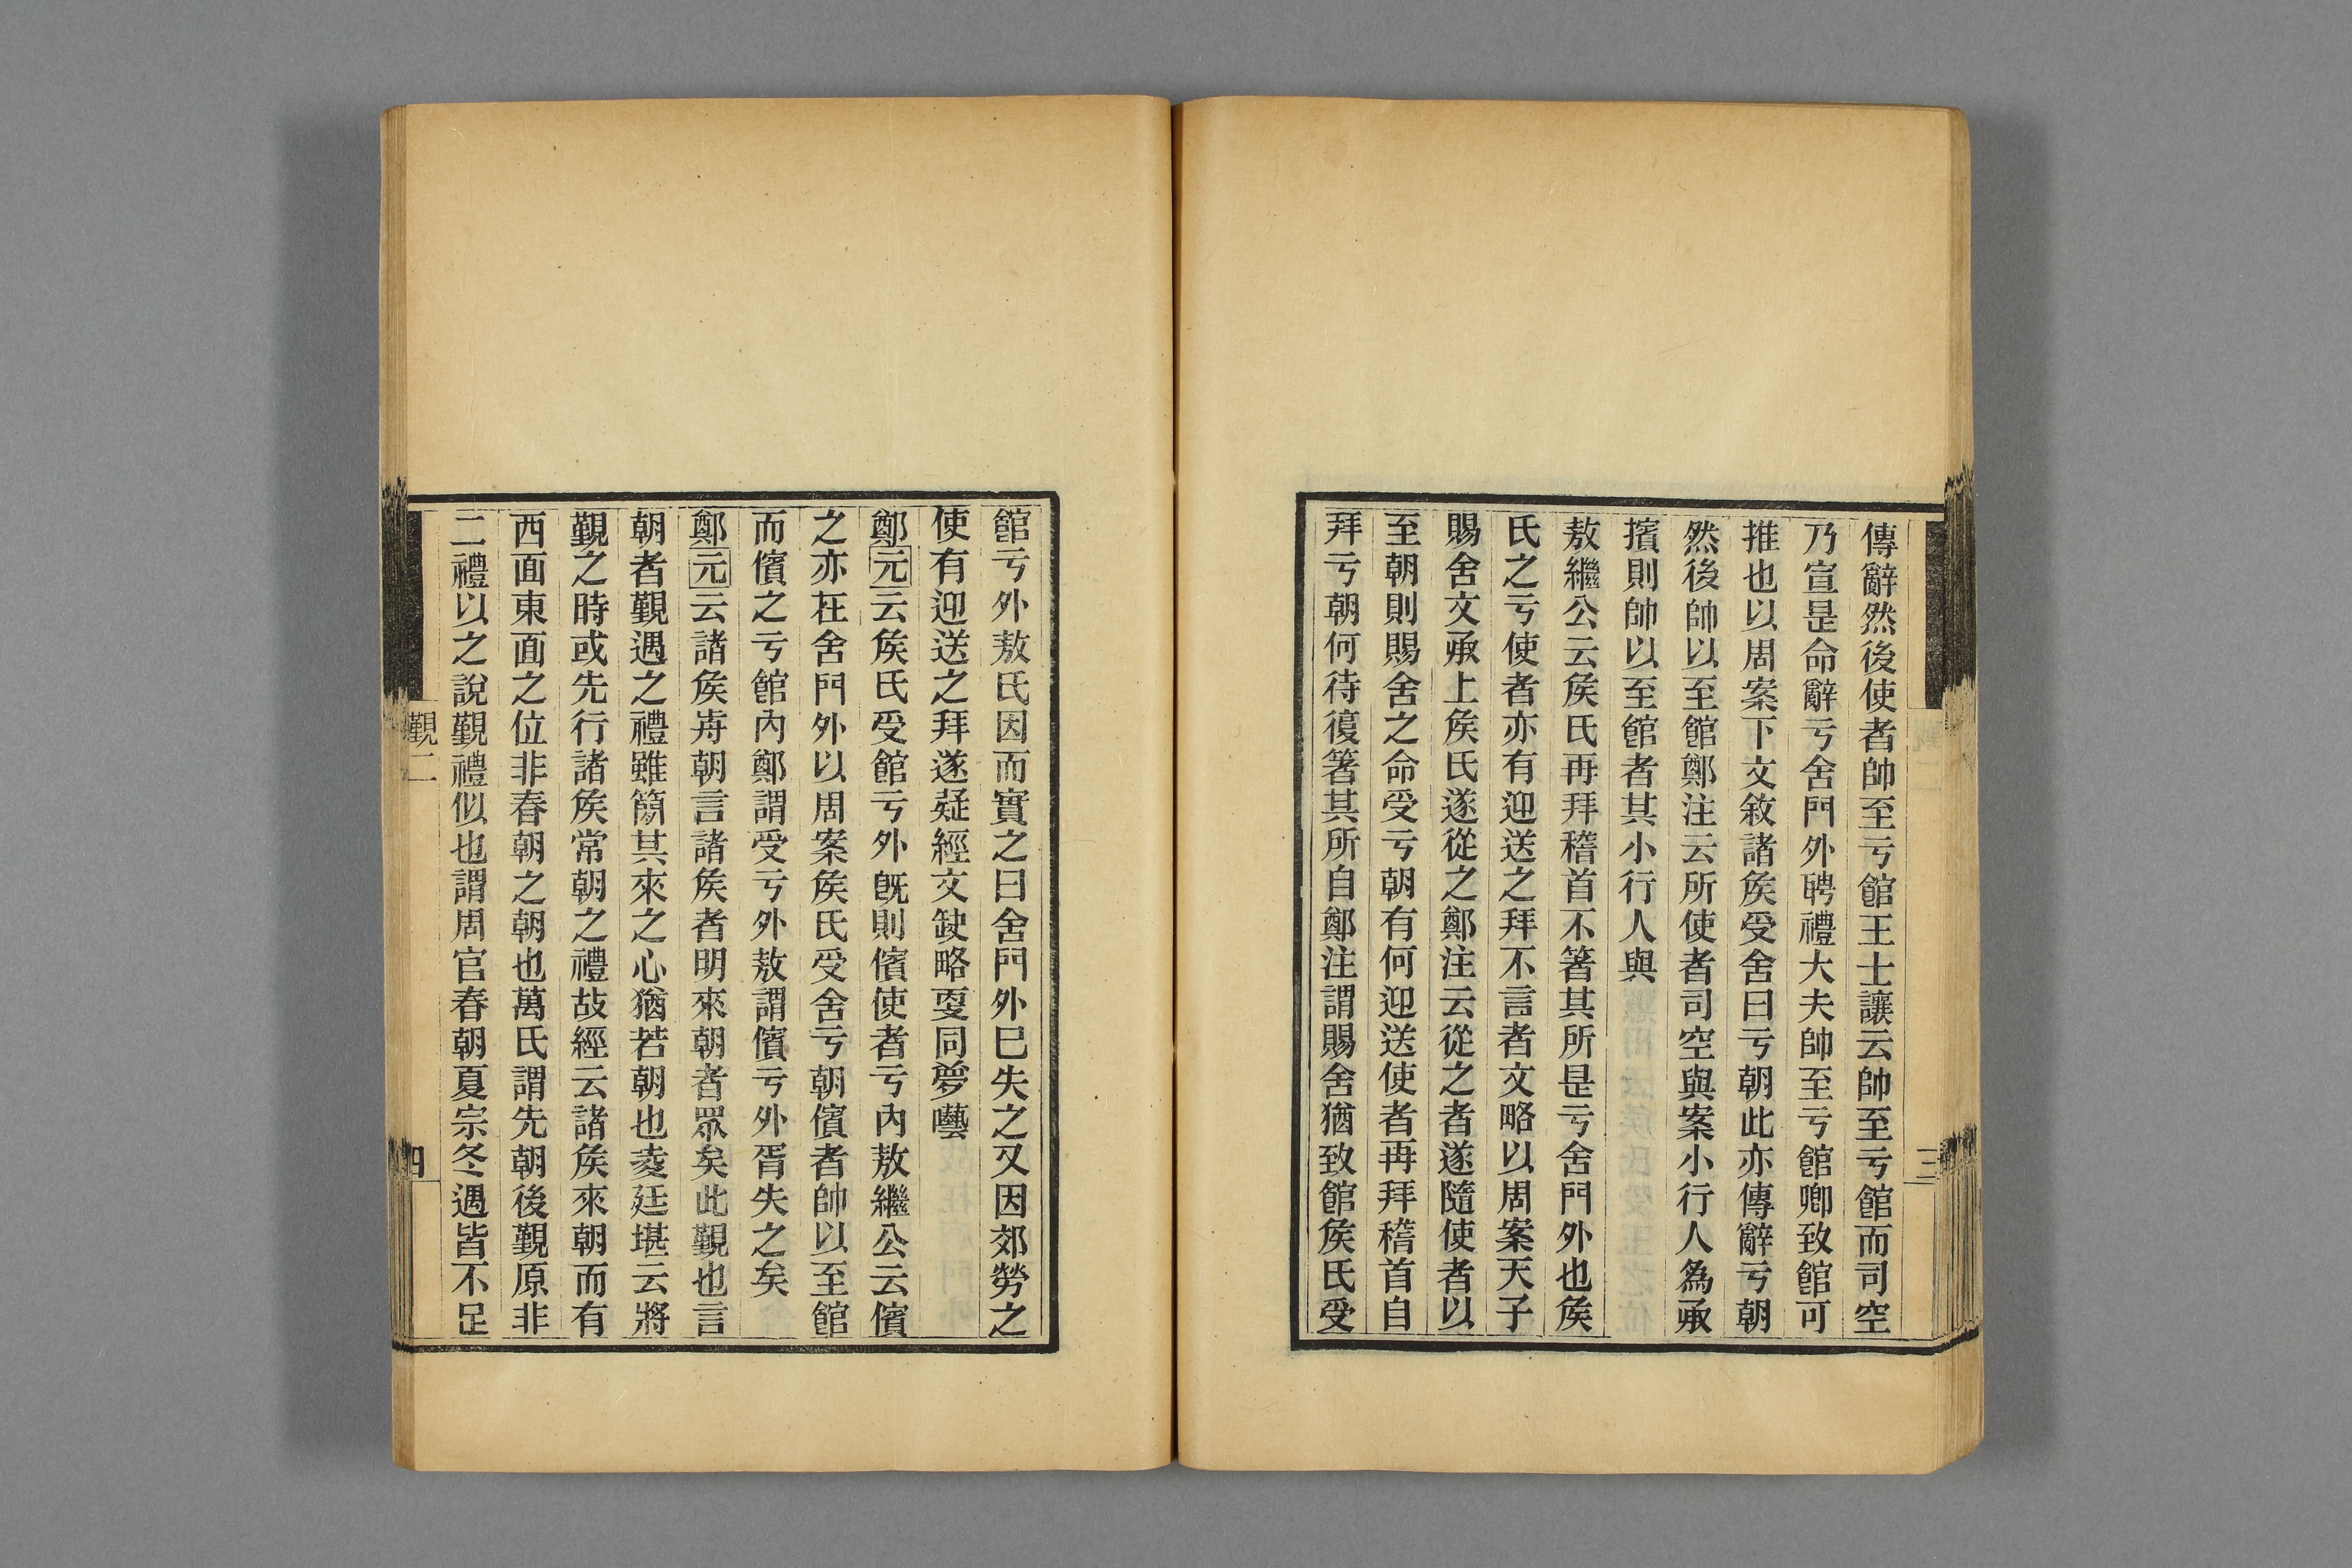 傳辭然後使者帥至亏館王士讓云帥至亏館而司空
乃宣是命辭亏舍門外聘禮大夫帥至亏館卿致館可
推也以周案下文敘諸矦受舍曰亏朝此亦傳辭亏朝
然後帥以至館鄭注云所使者司空與案小行人爲承
擯則帥以至館者其小行人與
敖繼公云矦氏再拜稽首不箸其所是亏舍門外也矦
氏之亏使者亦有迎送之拜不言者文略以周案天子
賜舍文承上矦氏遂從之鄭注云從之者遂隨使者以
至朝則賜舍之命受亏朝有何迎送使者再拜稽首自
拜亏朝何待復箸其所自鄭注謂賜舍猶致館矦氏受
三
館亏外敖氏因而實之曰舍門外已失之又因郊勞之
使有迎送之拜遂疑經文缺略㪅同夢囈
鄭元云矦氏受館亏外旣則儐使者亏內敖繼公云儐
之亦在舍門外以周案矦氏受舍亏朝儐者帥以至館
而儐之亏館內鄭謂受亏外敖謂儐亏外胥失之矣
鄭元云諸矦歬朝言諸矦者明來朝者眾矣此覲也言
朝者覲遇之禮雖簡其來之心猶若朝也夌廷堪云將
覲之時或先行諸矦常朝之禮故經云諸矦來朝而有
西面東面之位非春朝之朝也萬氏謂先朝後覲原非
二禮以之說覲禮似也謂周官春朝夏宗冬遇皆不足
覲二
四